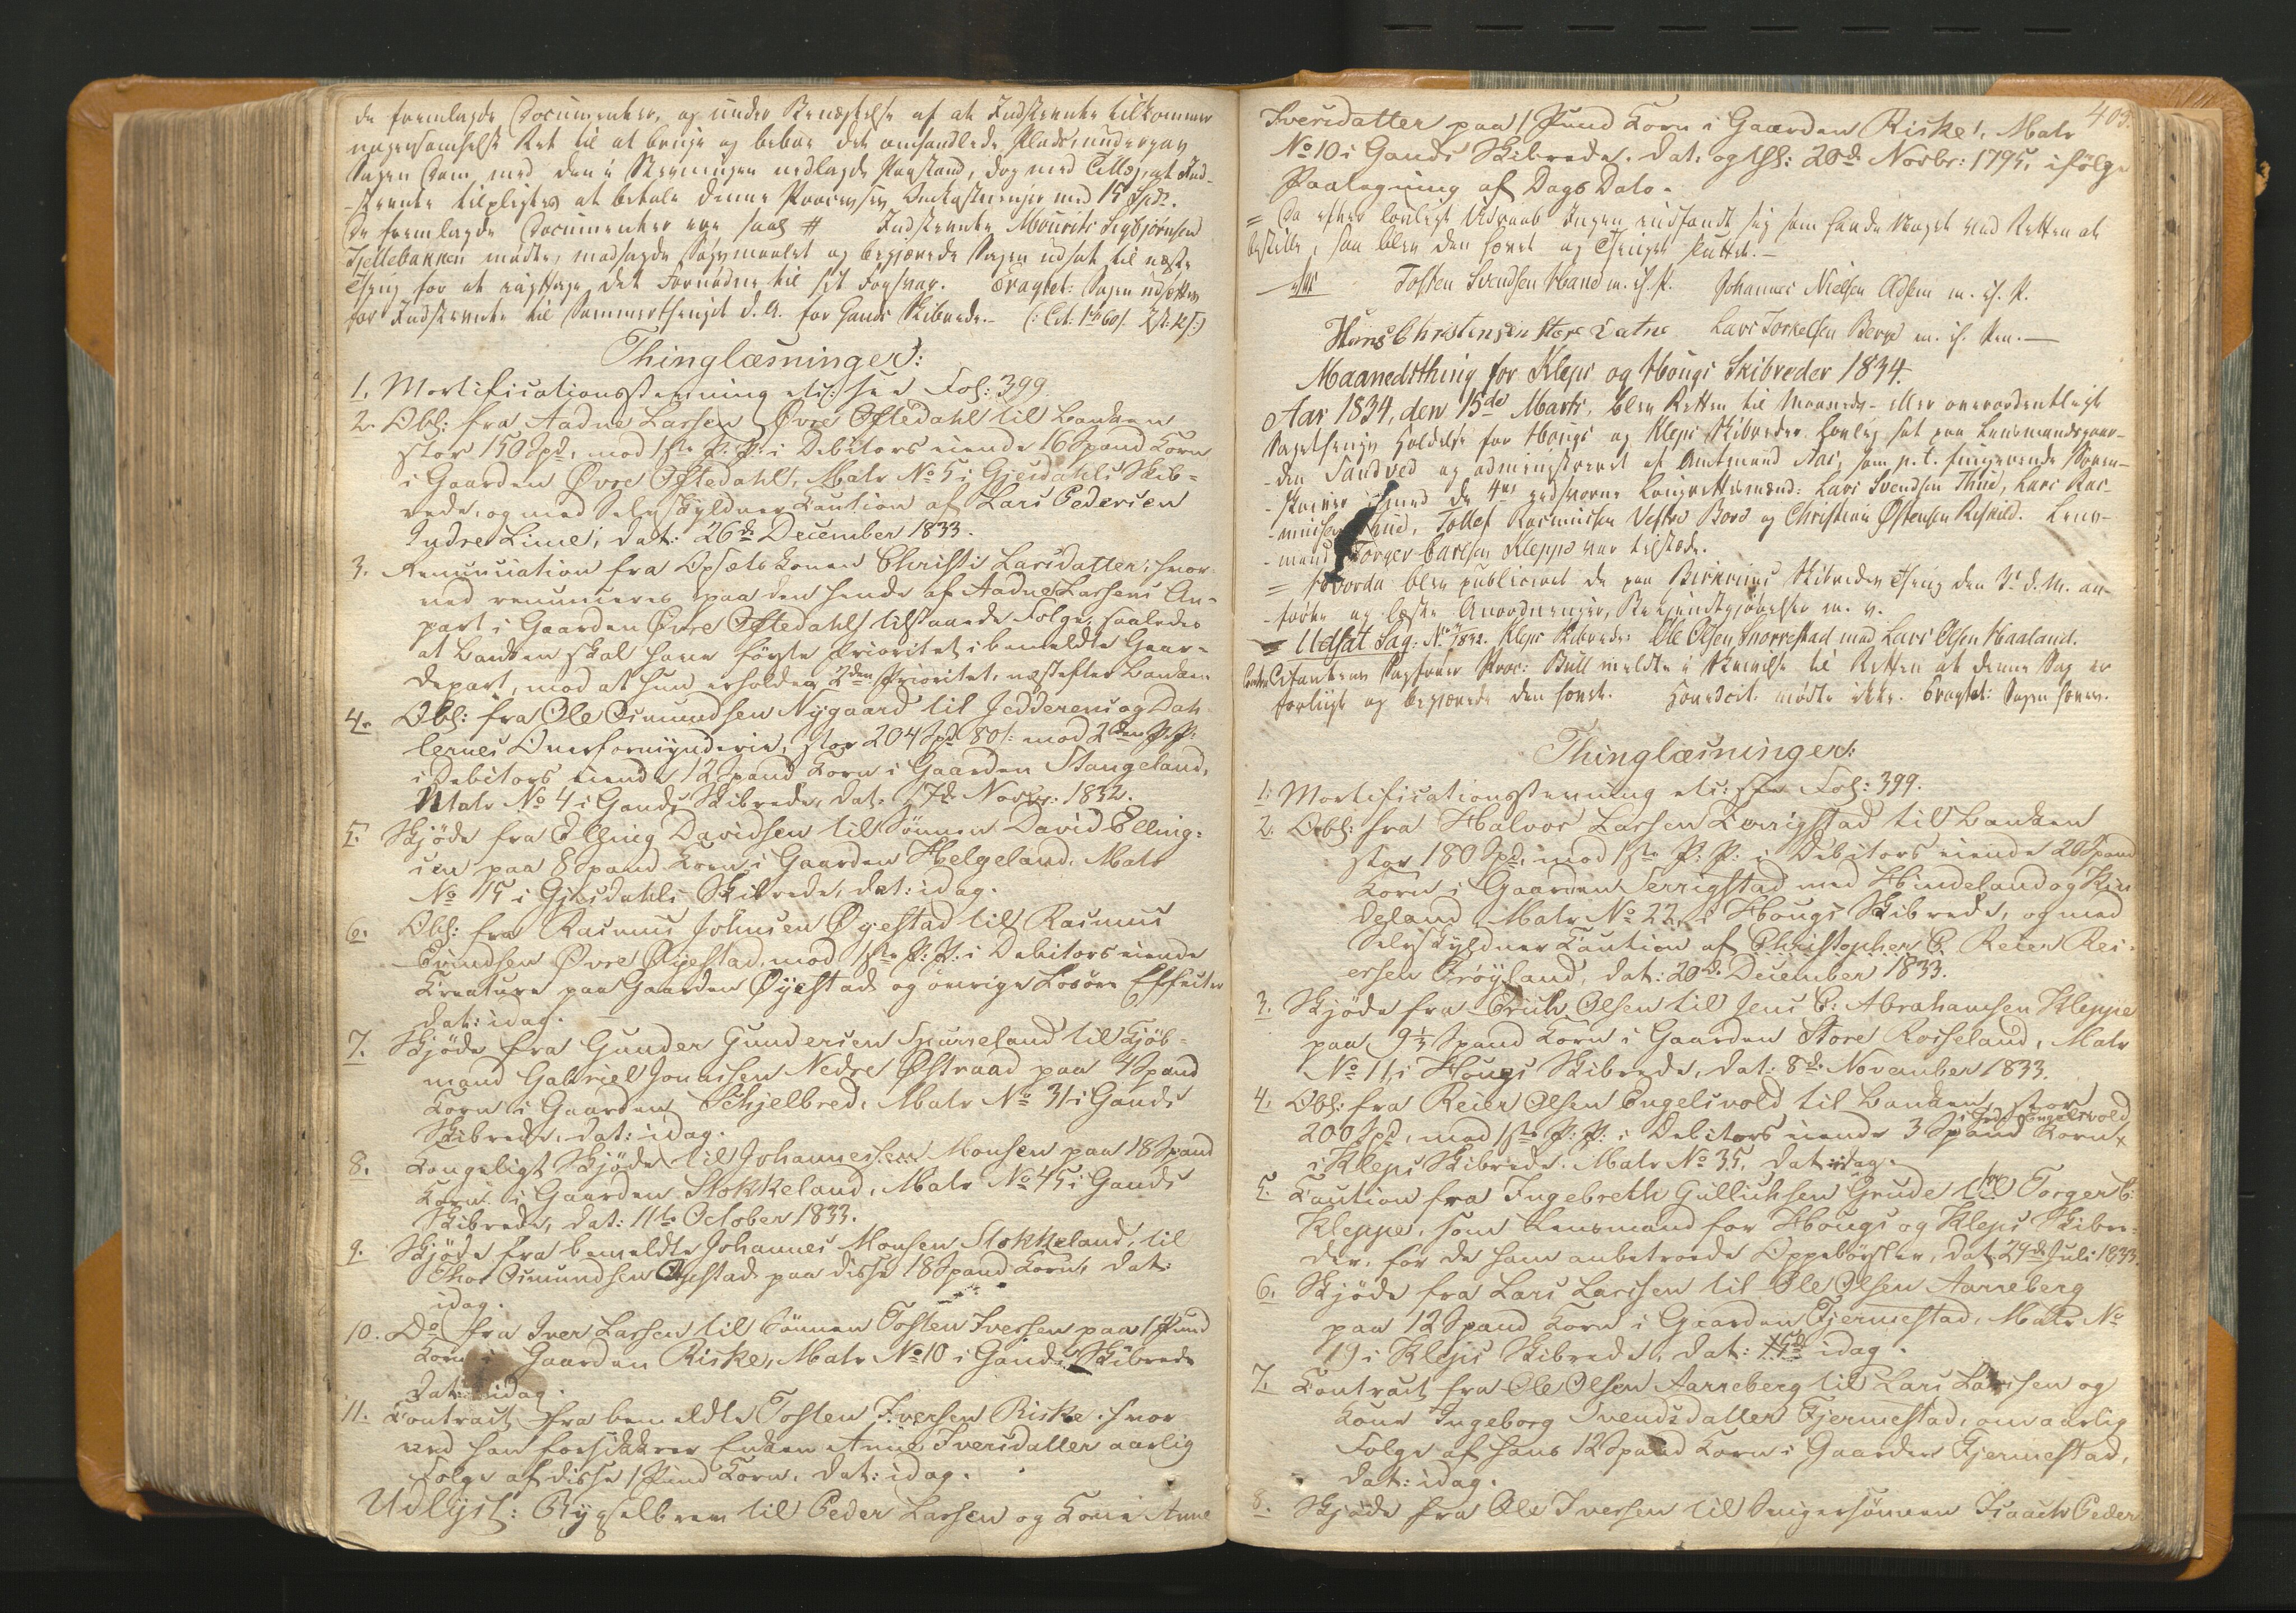 de fremlagde Documenter, og under Benægtelse af at Indstevnte tilkommer
nogensomhelst Ret til at bruge og beboe det omhandlede Plads, undergav
Sagen Dom, med den i Stevningen nedlagde Paastand, dog med Tillæg, at Ind-
stevnte tilpligtes at betale denne Processes Omkostninger med 15 Spd.
De fremlagde Documenter ere saal. # Indstevnte Mourits Sigbjørnsen
Tjellebakken mødte, modsagde Søgsmaalet og begjærede Sagen udsat til næste
Thing for at iagttage det Fornødne til sit Forsvar. Eragtet: Sagen udsættes
for Indstevnte til Sommerthinget d. A. for Gands Skibrede.
Thinglæsninger:
1. Mortificationsstevning etc: see Fol: 399
2. Obl: fra Aadne Larsen Øvre Oftedahl til Banken
stor 150 Spd, mod 1ste P: P: i Debitors eiende 16 Spand Korn
i Gaarden Øvre Oftedahl, Matr No 5 i Gjesdahls Skib-
rede, og med Selvskyldner Caution af Lars Pedersen
Indre Lime, dat: 26de December 1833.
3. Renunciation fra Opsætskonen Christi Larsdatter, hvor-
ved renunceres paa den hende af Aadne Larsens An-
part i Gaarden Øvre Oftedahl tilstaaede Folge, saaledes
at Banken skal have første Prioritet i bemeldte Gaar-
depart, mod at hun erholder 2den Prioritet, næstefter Banken
4. Obl: fra Ole Osmundsen Nygaard til Jedderens og Dah-
lernes Overformynderie, stor 204 Spd 80 s: mod 2den P: P:
i Debitors eiende 12 Spand Korn i Gaarden Stangeland,
Matr No 4 i Gands Skibrede, dat. 17de Novbr: 1832.
5. Skjøde fra Elling Davidsen til Sønnen David Elling-
sen paa 8 Spand Korn i Gaarden Helgeland, Matr
No 15 i Gjesdahls Skibrede, dat: idag.
6. Obl: fra Rasmus Johnsen Øyestad til Rasmus
Eivindsen Øvre Øyestad, mod 1ste P: P: i Debitors eiende
Creature paa Gaarden Øyestad og øvrige Løsøre Effecter
dat: idag.
7. Skjøde fra Gunder Gundersen Spurreland til Kjøb-
mand Gabriel Jonassen Nedre Østraad paa 4 Spand
Korn i Gaarden Schjelbred, Matr No 31 i Gands
Skibrede, dat: idag.
8. Kongeligt Skjøde til Johannes Monsen paa 18 Spand
Korn i Gaarden Stokkeland, Matr No 45 i Gands
Skibrede, dat: 11te October 1833.
9. Skjøde fra bemeldte Johannes Monsen Stokkeland, til
Thor Osmundsen Øyestad paa disse 18 Spand Korn, dat:
idag.
10. Do fra Iver Larsen til Sønnen Tosten Iversen paa 1 Pund
Korn i Gaarden Riske, Matr No 10 i Gands Skibrede
dat: idag.
11. Contract fra bemeldte Tosten Iversen Riske, hvor-
ved han forsikkrer Enken Anne Iversdatter aarlig
Folge af disse 1 Pund Korn, dat: idag.
Udlyst: Bygselbrev til Peder Larsen og Kone Anne
403.
Iversdatter paa 1 Pund Korn i Gaarden Riske, Matr
No 10 i Gands Skibrede. dat: og thl: 20de Novbr: 1795, ifølge
Paategning af Dags Dato.
= Da efter lovligt Udraab Ingen indfandt sig som havde Noget ved Retten at
bestille, saa blev den hævet og Thinget sluttet. -
Aas Tosten Svendsen Hane m. ih. P. Johannes Nielsen Adsem m. ih. P.
Hans Christensen Store Vatne Lars Torkelsen Berge m. ih. Pen. —
Maanedsthing for Kleps og Hougs Skibreder 1834.
Aar 1834, den 15de Marts, blev Retten til Maaneds- eller overordentligt
Sagethings Holdelse for Hougs og Kleps Skibreder lovlig sat paa Lensmandsgaar-
den Sandved og administreret af Amtmand Aas, som p. t. fungerende Soren-
skriver med de 4re edsvorne Laugrettesmænd: Lars Svendsen Thue, Lars Ras-
mussen Thue, Tollef Rasmussen Vestre Bore og Christian Østensen Riskild. Lens-
mand Torger Carlsen Kleppe var tilstede.
= Hvorda blev publiceret de paa Birkrems Skibredes Thing den 3. d. M. an-
førte og læste Anordninger, Bekjendtgjørelser m. v.
Udsat Sag: No /1832. Kleps Skibrede: Ole Olsen Snorrestad mod Lars Olsen Haaland.
Citantens Sagfører Proc: Bull meldte i Skrivelse til Retten at denne Sag er
forligt og begjærede den hævet. Contracit. mødte ikke. Eragtet: Sagen hæves.
Thinglæsninger:
1. Mortificationsstevning etc: see Fol: 399.
2. Obl: fra Halvor Larsen Serrigstad til Banken
stor 180 Spd, mod 1ste P: P: i Debitors eiende 20 Spand
Korn i Gaarden Serrigstad med Hindeland og Rin-
deland Matr No 22 i Hougs Skibrede, og med
Selvskyldner Caution af Christopher E. Reier Rei-
ersen Frøyland, dat: 20de December 1833.
3. Skjøde fra Erich Olsen til Jens C: Abrahamsen Kleppe
paa 9 1/3 Spand Korn i Gaarden Store Rosseland, Matr
No 11 i Hougs Skibrede, dat: 8de November 1833.
4. Obl: fra Reier Olsen Engelsvold til Banken, stor
200 Spd, mod 1ste P: P: i Debitors eiende 3 Spand Korn x i Grd: Engelsvold
i Kleps Skibrede. Matr No 35, dat: idag.
5. Caution fra Ingebreth Gullichsen Grude for Torger C:
Kleppe, som Lensmand for Hougs og Kleps Skibre-
der, for de ham anbetroede Oppebørsler, dat: 29de Juli 1833.
6. Skjøde fra Lars Larssen til Ole Olsen Aarreberg
paa 12 Spand Korn i Gaarden Fjermestad, Matr No
19 i Kleps Skibrede, dat: idag.
7. Contract fra Ole Olsen Aarreberg til Lars Larssen og
Kone Ingeborg Svendsdatter Fjermestad, om aarlig
Folge af hans 12 Spand Korn i Gaarden Fjermestad,
dat: idag.
8. Skjøde fra Ole Iversen til Svigersønnen Isaach Peder